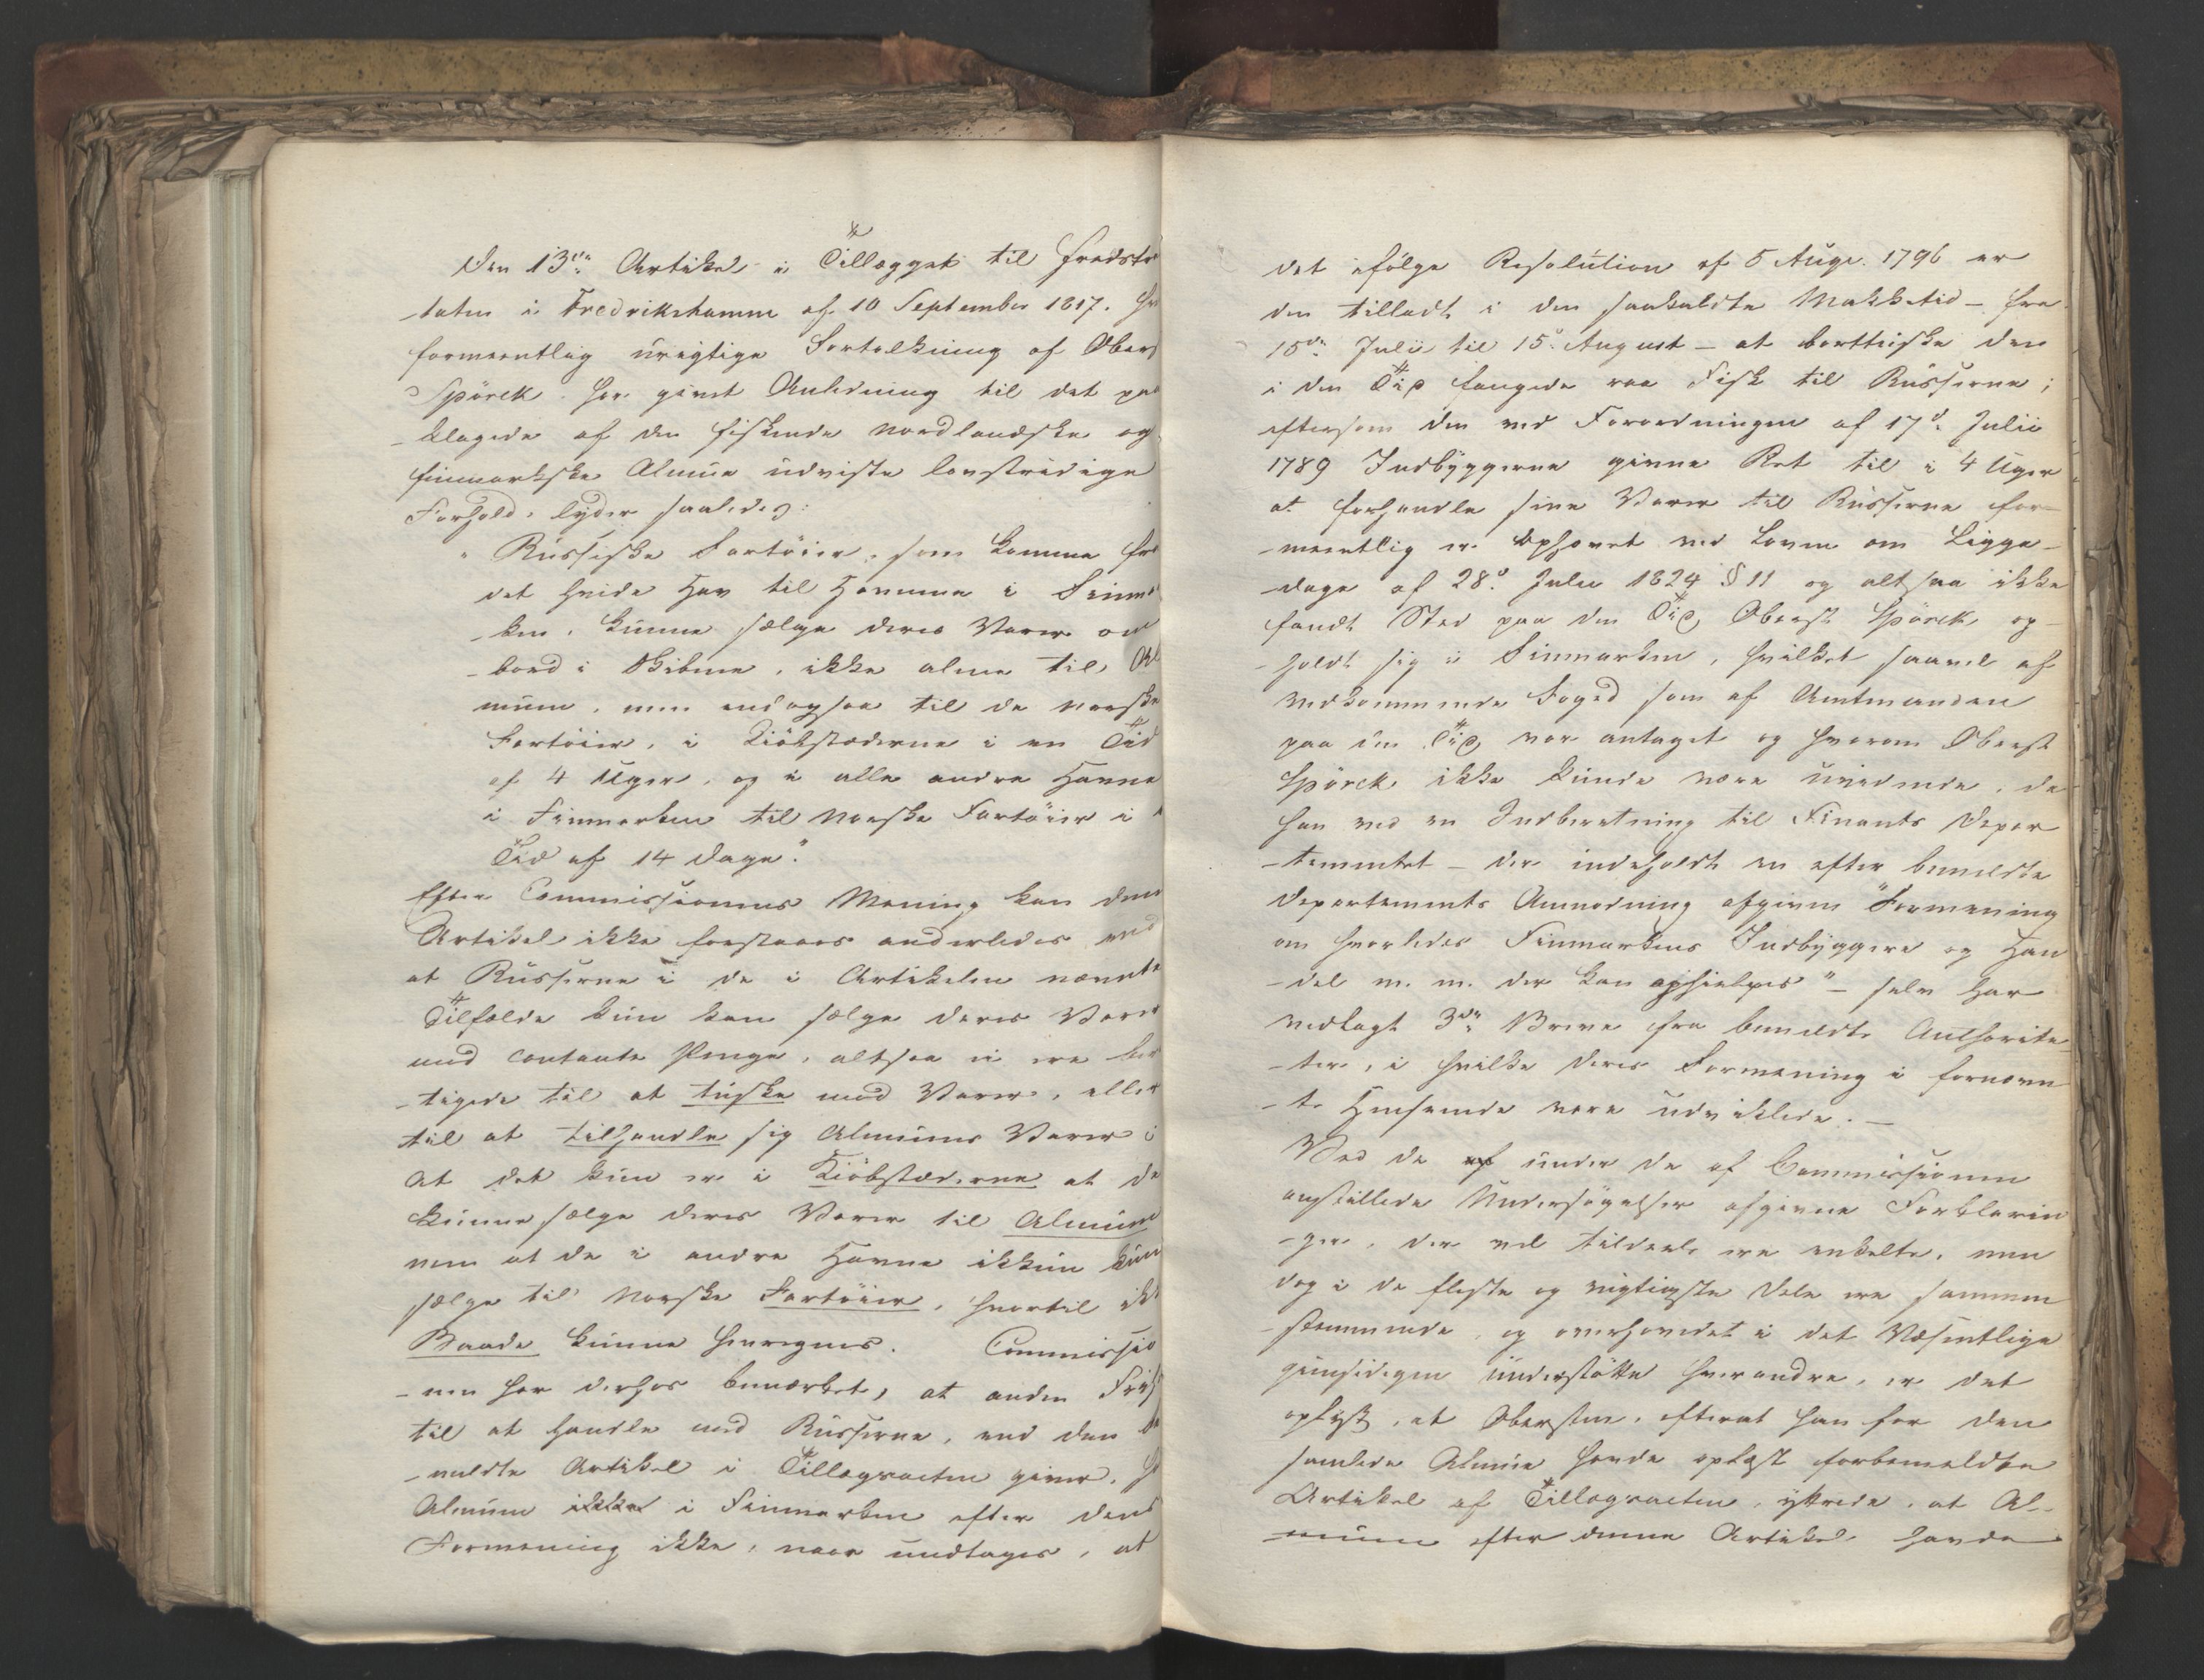 Den 13de Artikel i Tillægget til Fredstra
-taten i Fredrikshamn af 10 September 1817. hvis
formeentlig urigtige Fortolkning af Oberst
Spörck har givet Anledning til det paa
-klagede af den fiskende nordlandske og
finmarkske Almue udviste lovstridige
Forhold, lyder saaledes:
"Russiske Fartöier, som komme fra
det hvide Hav til Havnene i Finmar
-ken, kunne sælge deres Varer om
-bord i Skibene, ikke alene til Al
muen, men endogsaa til de norske
Fartöier, i Kiöbstæderne i en Tid
af 4 Uger, og i alle andre Havne
i Finmarken til Norske Fartöier i
Tid af 14 Dage".
Efter Commissionens Mening kan denne
Artikel ikke forstaaes anderledes end
at Russerne i de i Artikelen nævnte
Tilfælde kun kan sælge deres Varer
mod contante Penge, altsaa ei ere ber
-tigede til at tuske mod Varer, eller
til at tilhandle sig Almuens Varer i
at det kun er i Kiöbstæderne at de
kunne sælge deres Varer til Almuen
men at de i andre Havne ikkun kun
sælge til Norske Fartöier, hvortil ikke
Baade kunne henregnes. Commissio
-nen har derhos bemærket, at anden Frih
til at handle med Russerne, end den be
-meldte Artikel i Tillægsacten giver, ha
Almuen ikke i Finmarken efter dens
Formening ikke, naar undtages, at
det ifölge Resolution af 5 Augs. 1796 er
den tilladt i den saakaldte Makketid – fra
15de Julii til 15. August – at borttuske den
i den Tid fangede raa Fisk til Russerne;
eftersom den ved Forordningen af 17de Julii
1789 Indbyggerne givne Ret til i 4 Uger
at forhandle sine Varer til Russerne for-
-meentlig er ophævet ved Loven om Ligge-
-dage af 28de Julii 1824 § 11 og altsaa ikke
fandt Sted paa den Tid, Oberst Spörck op-
-holdt sig i Finmarken, hvilket saavel af
vedkommende Foged som af Amtmanden
paa den Tid var antaget og hvorom Oberst
Spörck ikke kunde være uvidende, da
han ved en Indberetning til Finants Depar
-tementet – der indeholdt en efter bemeldte
Departements Anmodning afgiven "Formening
om hvorledes Finmarkens Indbyggere og Han
-del m. m. der kan ophielpes" – selv har
vedlagt 3de Breve fra bemeldte Authorite-
-ter, i hvilke deres Formening i fornævn
-te Henseende vare udviklede. –
Ved de af under de af Commissionen
anstillede Undersögelser afgivne Forklarin
-ger, der vel tildeels ere enkelte, men
dog i de fleste og vigtigste Dele ere sammen
-stemmende, og overhovedet i det Væsentlige
giensidigen understötte hverandre, er det
oplyst, at Obersten, efterat han for den
samlede Almue havde oplæst forbemeldte
Artikel af Tillægsacten, yttrede, at Al-
-muen efter denne Artikel havde